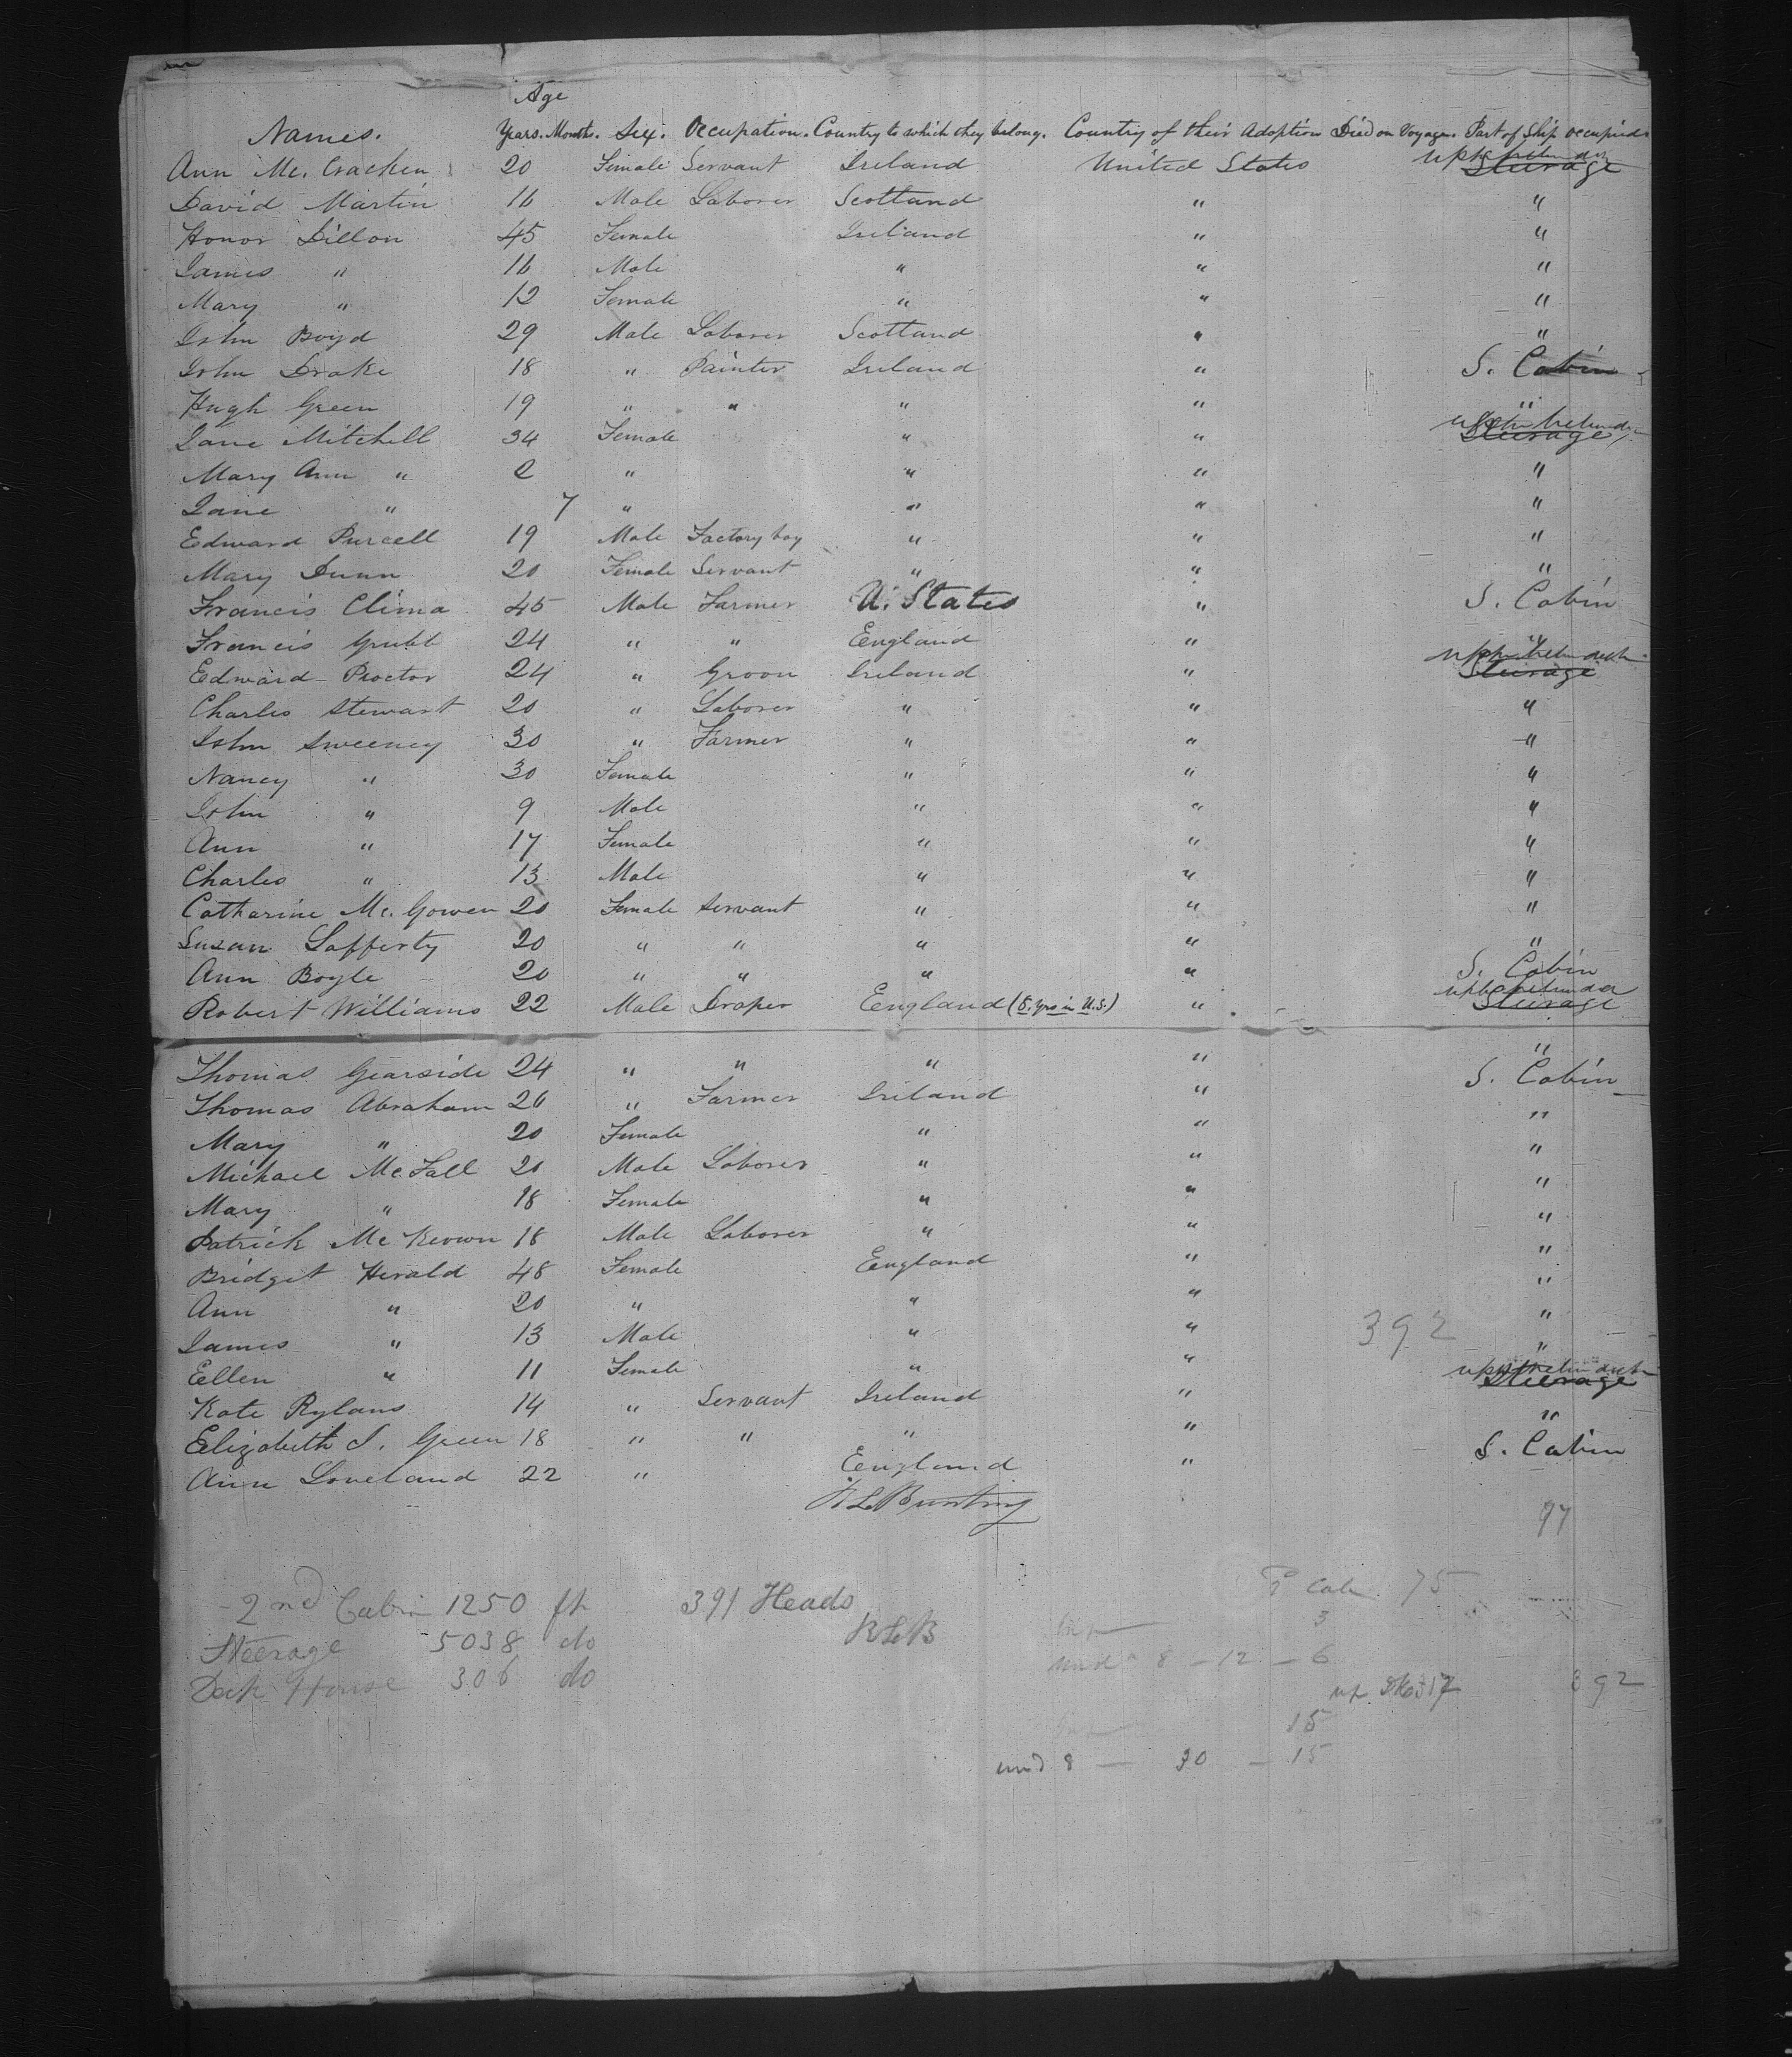 Age
Names. Years. Months. Sex. Occupation. Country to which they belong. Country of their Adoption Died on Voyage. Part of Ship occupied
Ann Mc. Cracken 20 Female Servant Ireland United States Steerage
David Martin 16 Male Laborer Scotland " "
Honor Dillon 45 Female Ireland " "
James " 16 Male " " "
Mary " 12 Female " " "
John Boyd 29 Male Laborer Scotland " "
John Drake 18 " Painter Ireland " S. Cabin
Hugh Green 19 " " " " "
Jane Mitchell 34 Female " " Steerage
Mary Ann " 2 " " " "
Jane " 7 " " " "
Edward Purcell 19 Male Factory boy " " "
Mary Dunn 20 Female Servant " " "
Francis Clima 45 Male Farmer U. States " S. Cabin
Francis Grubb 24 " " England " "
Edward Proctor 24 " Groom Ireland " Steerage
Charles Stewart 20 " Laborer " " "
John Sweeney 30 " Farmer " " "
Nancy " 30 Female " " "
John " 9 Male " " "
Ann " 17 Female " " "
Charles " 13 Male " " "
Catharine Mc. Gowen 20 Female Servant " " "
Susan Lafferty 20 " " " " "
Ann Boyle 20 " " " " S. Cabin
Robert Williams 22 Male Draper England (5. yrs in U.S.) " Steerage
Thomas Gearside 24 " " " " "
Thomas Abraham 26 " Farmer Ireland " S. Cabin
Mary " 20 Female " " "
Michael Mc Fall 20 Male Laborer " " "
Mary " 18 Female " " "
Patrick Mc Keown 18 Male Laborer " " "
Bridget Herald 48 Female England " "
Ann " 20 " " " "
James " 13 Male " " "
Ellen " 11 Female " " "
392
Kate Rylans 14 " Servant Ireland " Steerage
Elizabeth J. Green 18 " " " " "
Ann Loveland 22 " England " S. Cabin
R L Bunting
97
2nd Cabin 1250 ft 391 Heads
RLB
Steerage 5038 do
Deck House 306 do
Cab 75
3
und 8 - 12 - 6
392
15
und 8 - 30 - 15